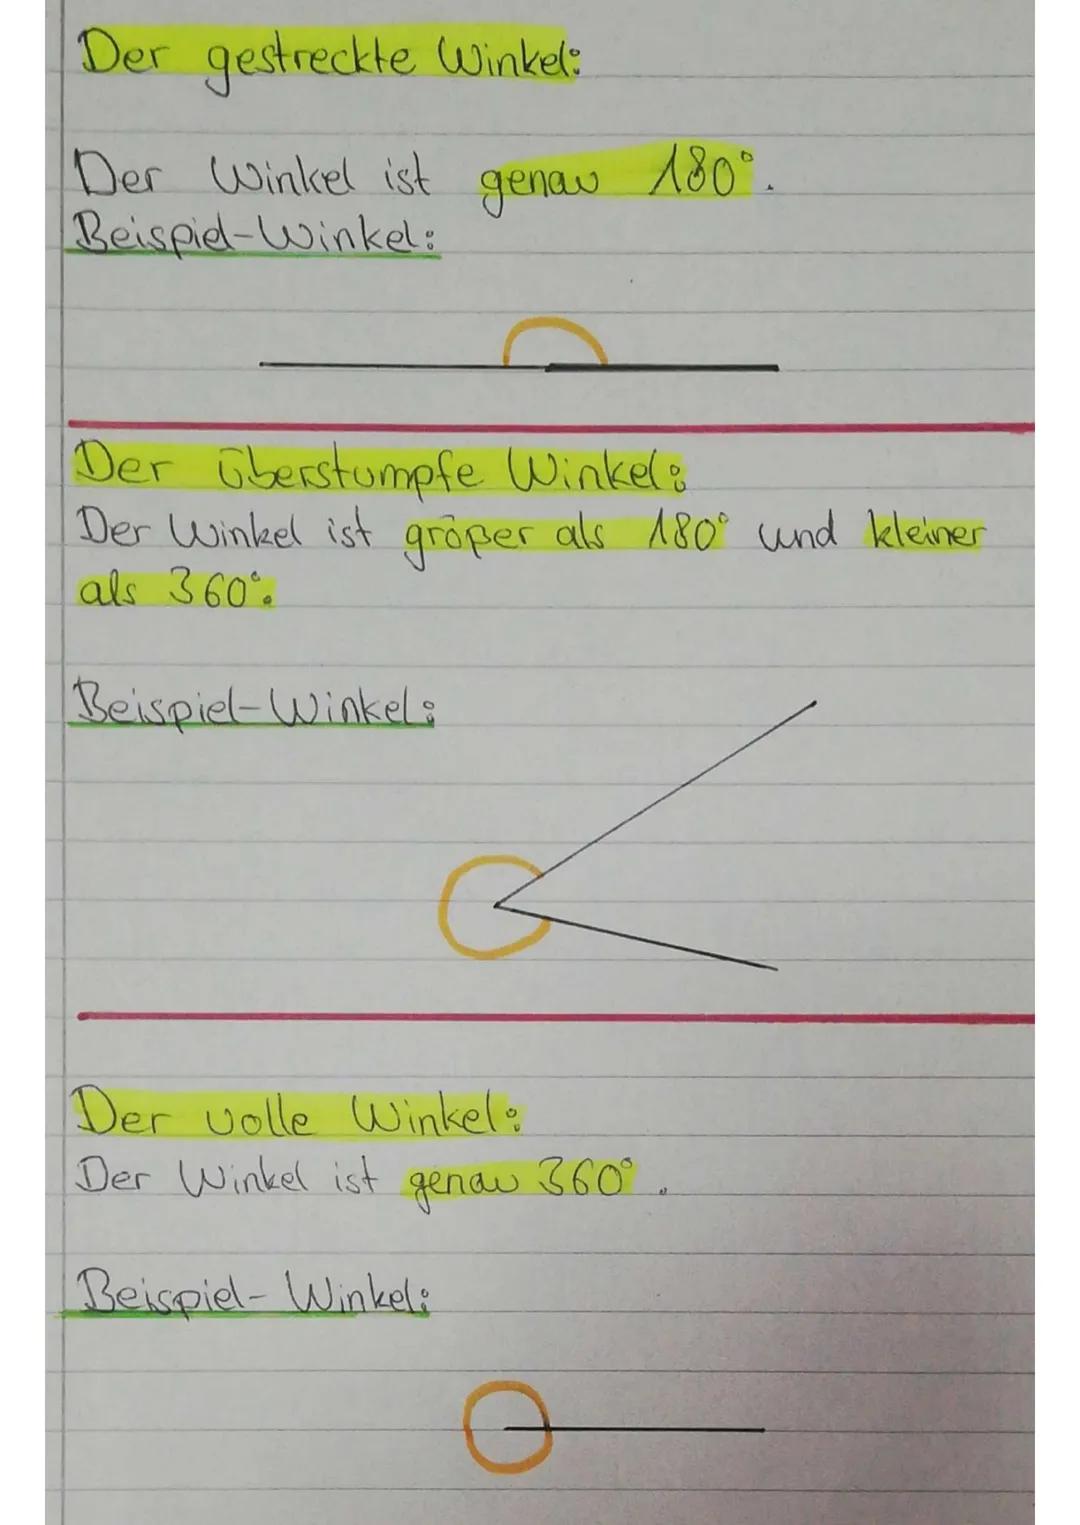 Der gestreckte Winkel:
Der Winkel ist genau 180°.
Beispiel-Winkel:
Der überstumpfe Winkel:
Der Winkel ist größer als 180° und kleiner
als 360°.
Beispiel-Winkel:
Der volle Winkel:
Der Winkel ist genau 360°.
Beispiel-Winkel: